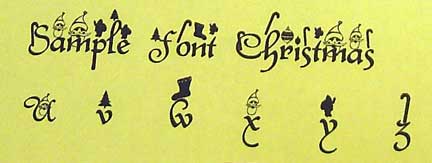 Sample Font Christmas
u v w x y z